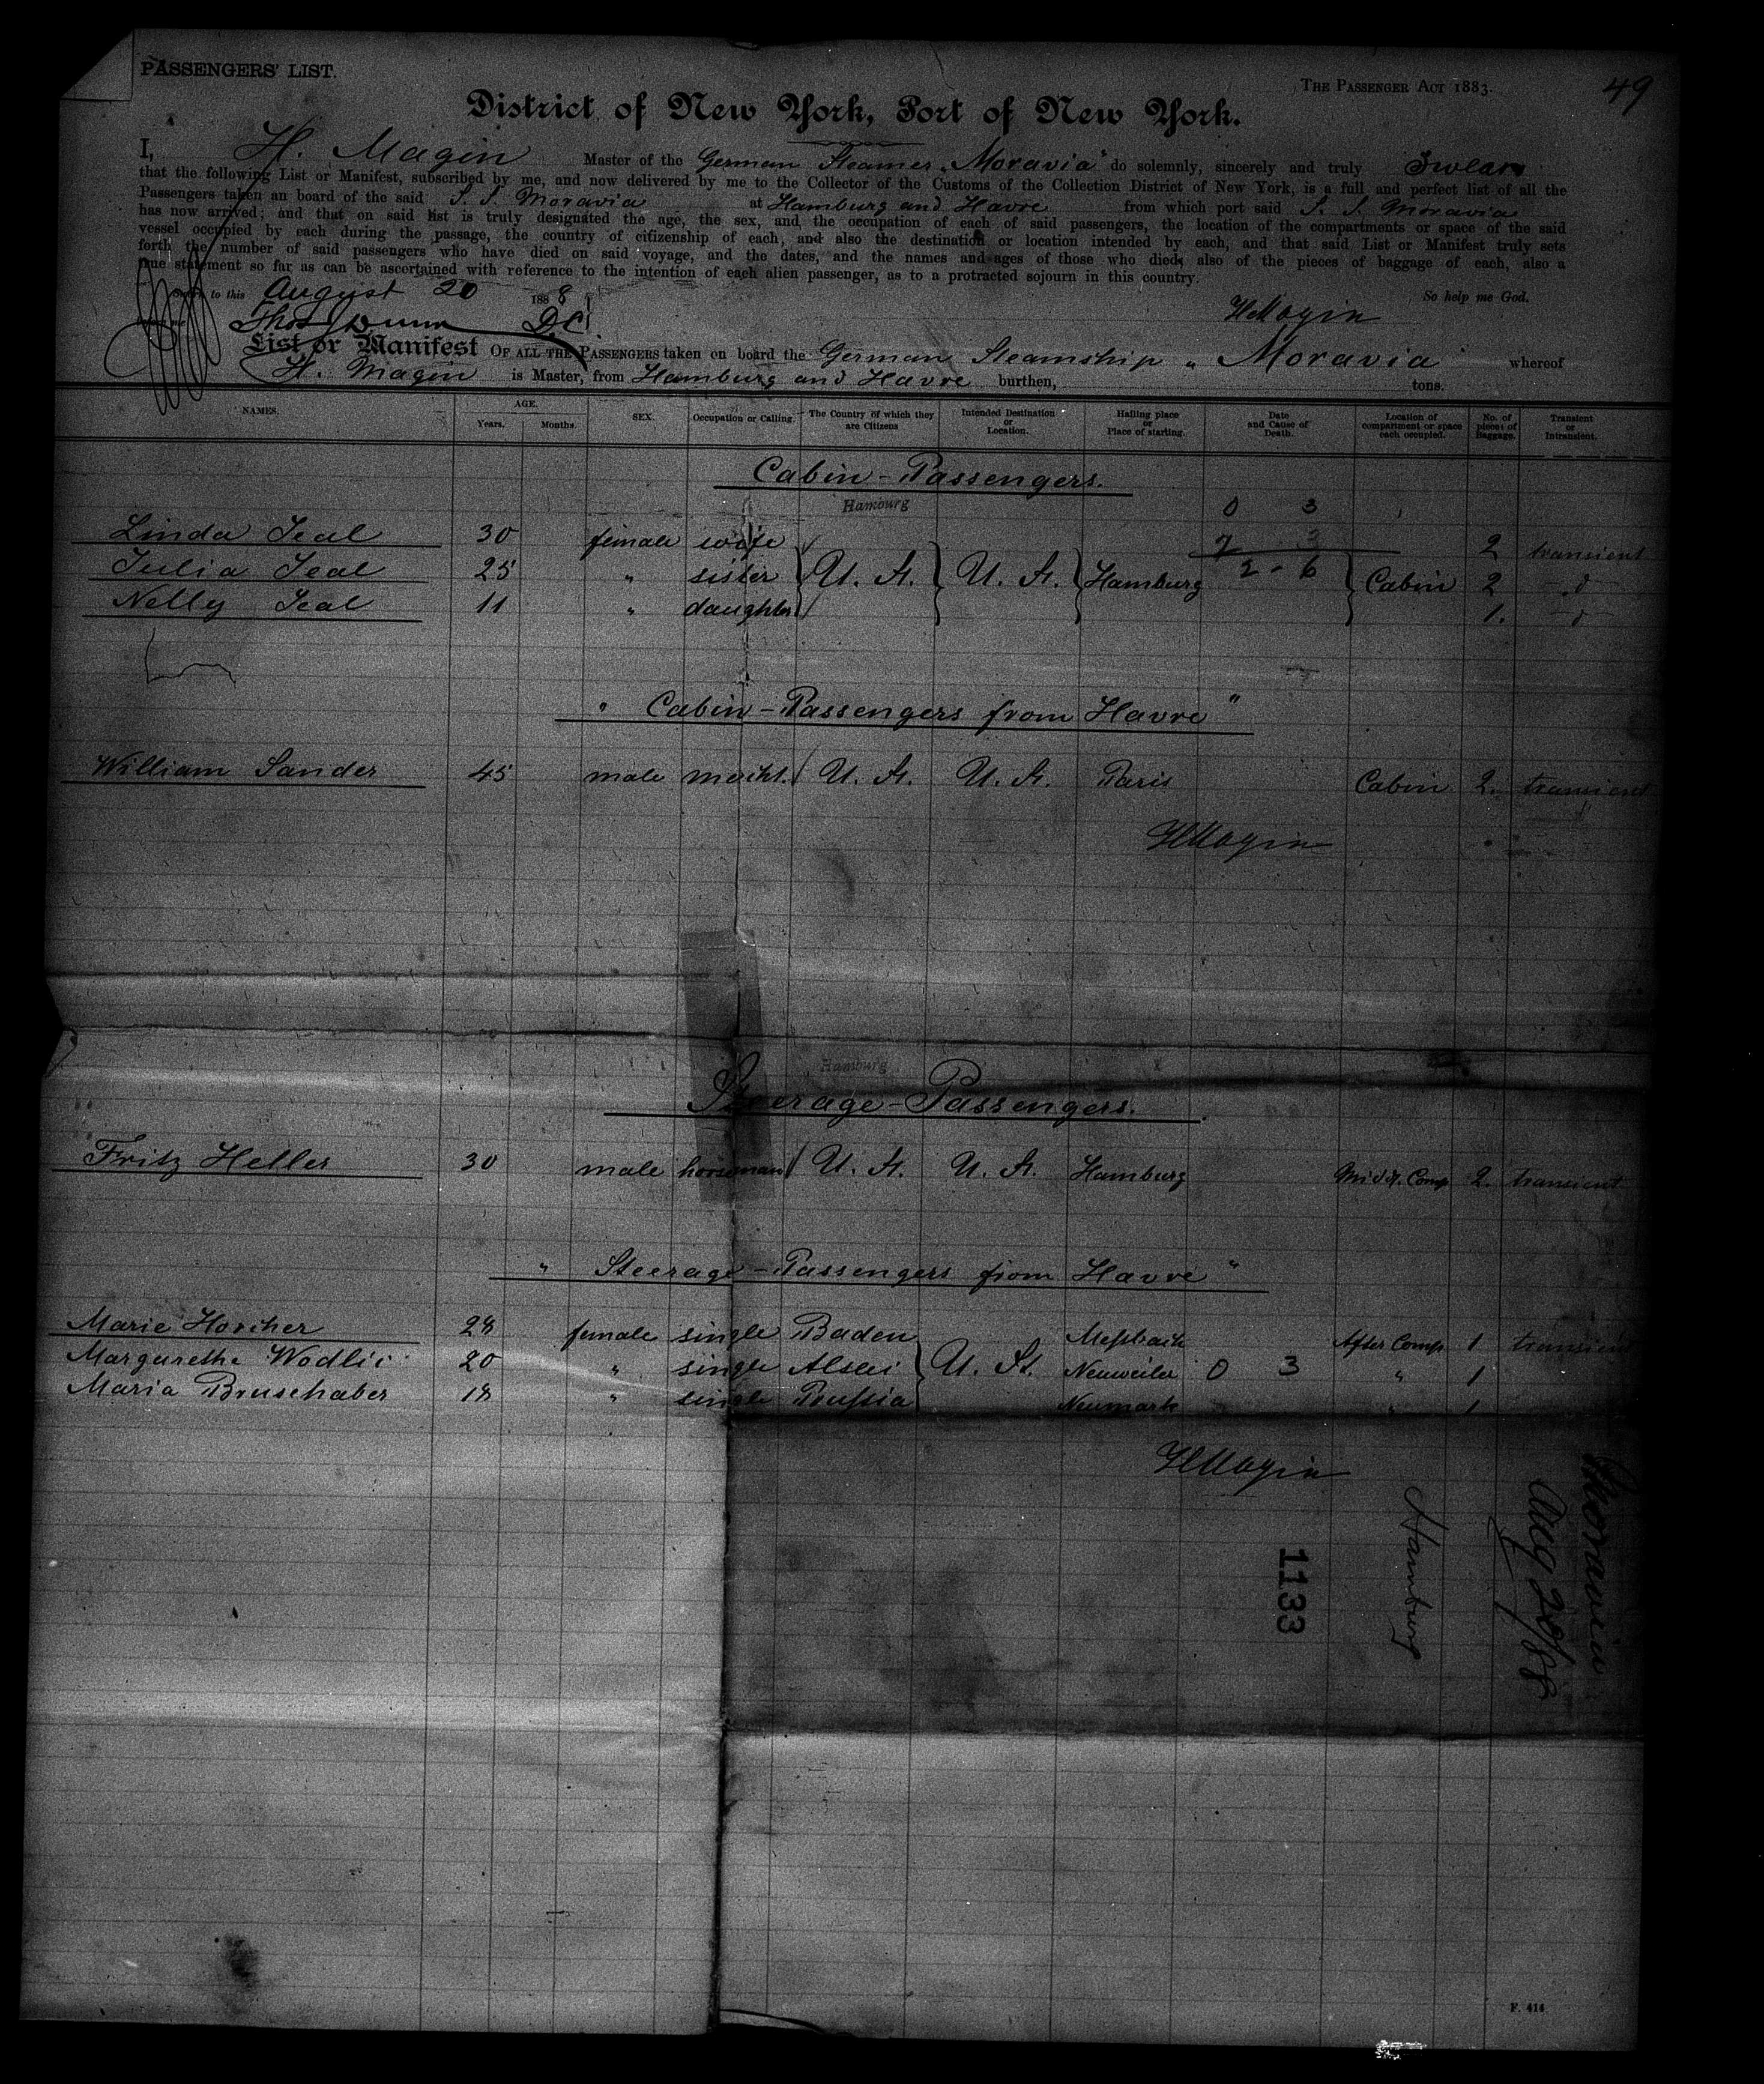 PASSENGERS' LIST.
THE PASSENGER ACT 1883.
49
District of New York, Port of New York.
I, H. Magin Master of the German Steamer „Moravia" do solemnly, sincerely and truly Swear
that the following List or Manifest, subscribed by me, and now delivered by me to the Collector of the Customs of the Collection District of New York, is a full and perfect list of all the
Passengers taken an board of the said S. S. Moravia at Hamburg and Havre from which port said S. S. Moravia
has now arrived; and that on said list is truly designated the age, the sex, and, the occupation of each of said passengers, the location of the compartments or space of the said
vessel occupied by each during the passage, the country of citizenship of each, and also the destination or location intended by each, and that said List or Manifest truly sets
forth the number of said passengers who have died on said voyage, and the dates, and the names and ages of those who died, also of the pieces of baggage of each, also a
true statement so far as can be ascertained with reference to the intention of each alien passenger, as to a protracted sojourn in this country.
to this August 20 1888
So help me God.
Thos Dunn D.C.
HMagin
List or Manifest OF ALL THE PASSENGERS taken on board the German Steamship „ Moravia " whereof
H. Magin is Master, from Hamburg and Havre burthen, tons.
NAMES. AGE. Years. Months. SEX. Occupation or Calling. The Country of which they are Citizens Intended Destination or Location. Hailing place or Place of starting. Date and Cause of Death. Location of compartment or space each occupied. No. of pieces of Baggage. Transient or Intransient.
Cabin-Passengers.
Hamburg
0 3
Linda Teal 30 female wife 2 transient
2 3
2 - 6
Julia Teal 25 " sister U. St. U. St. Hamburg Cabin 2 d
Nelly Teal 11 " daughter 1. d
" Cabin-Passengers from Havre "
William Sander 45 male mercht. U. St. U. St. Paris Cabin 2. transient
HMagin
Hamburg
Steerage-Passengers.
Fritz Heller 30 male horseman U. St. U. St. Hamburg Midd. Comp 2. transient
" Steerage-Passengers from Havre "
Marie Horcher 28 female single Baden After Comp 1 transient
Margarethe Wodlic 20 " single U. St. Neuweiler 0 3 " 1
Maria Bruschaber 18 " single Prussia Neumark " 1
HMagin
Moravia
Aug 20/88
Hamburg
1133
F. 414